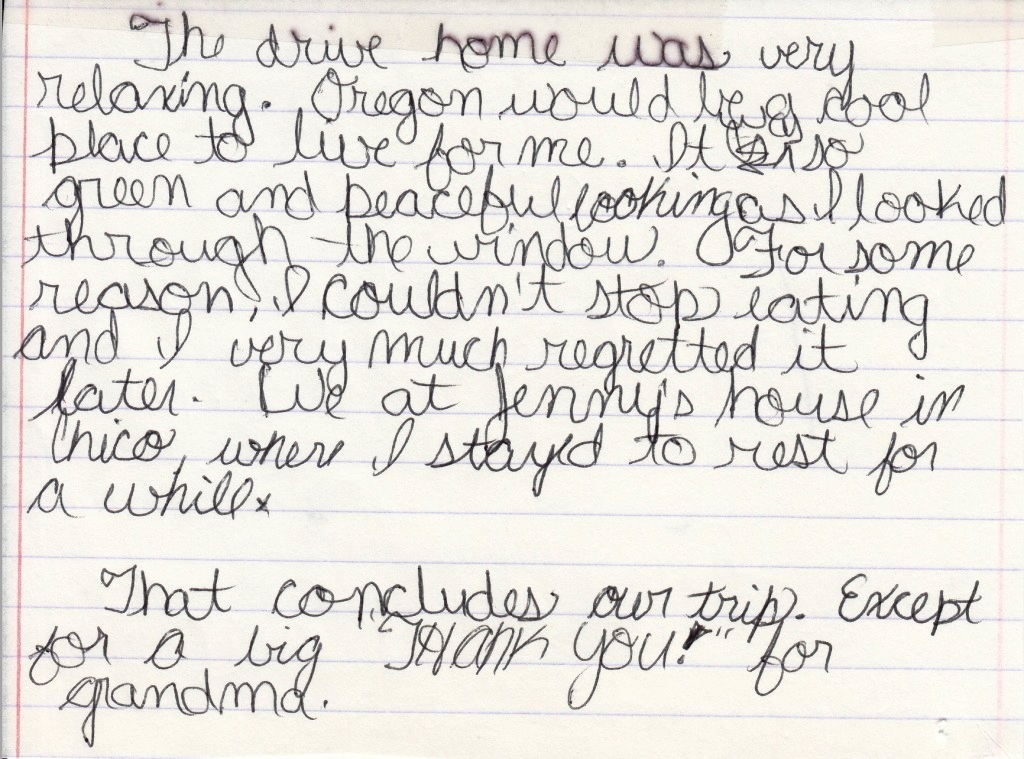 The drive home was very
relaxing. Oregon would be a cool
place to live for me. It is so
green and peaceful looking as I looked
through the window. For some
reason, I couldn't stop eating
and I very much regretted it
later. We at Jenny's house in
Chico, where I stayed to rest for
a while.
That concludes our trip. Except
for a big "THANK YOU!" for
grandma.